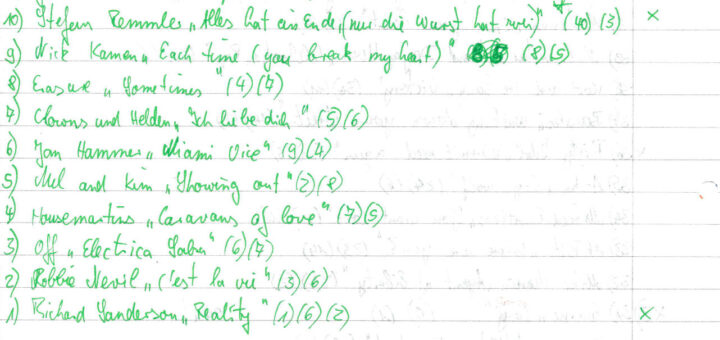 10) Stefan Remmler „Alles hat ein Ende, (nur die Wurst hat zwei)" * (40) (3) x
9) Nick Kamen „Each time (you break my heart)" (8) (5)
8) Erasure „Sometimes" (4) (7)
7) Clowns und Helden „Ich liebe dich" (5) (6)
6) Jan Hammer „Miami Vice" (9) (4)
5) Mel and Kim „Showing out" (2) (8)
4) Housemartins „Caravans of love" (7) (5)
3) Off „Electrica Salsa" (6) (7)
2) Robbie Nevil „C'est la vie" (3) (6)
1) Richard Sanderson „Reality" (1) (6) (2) x